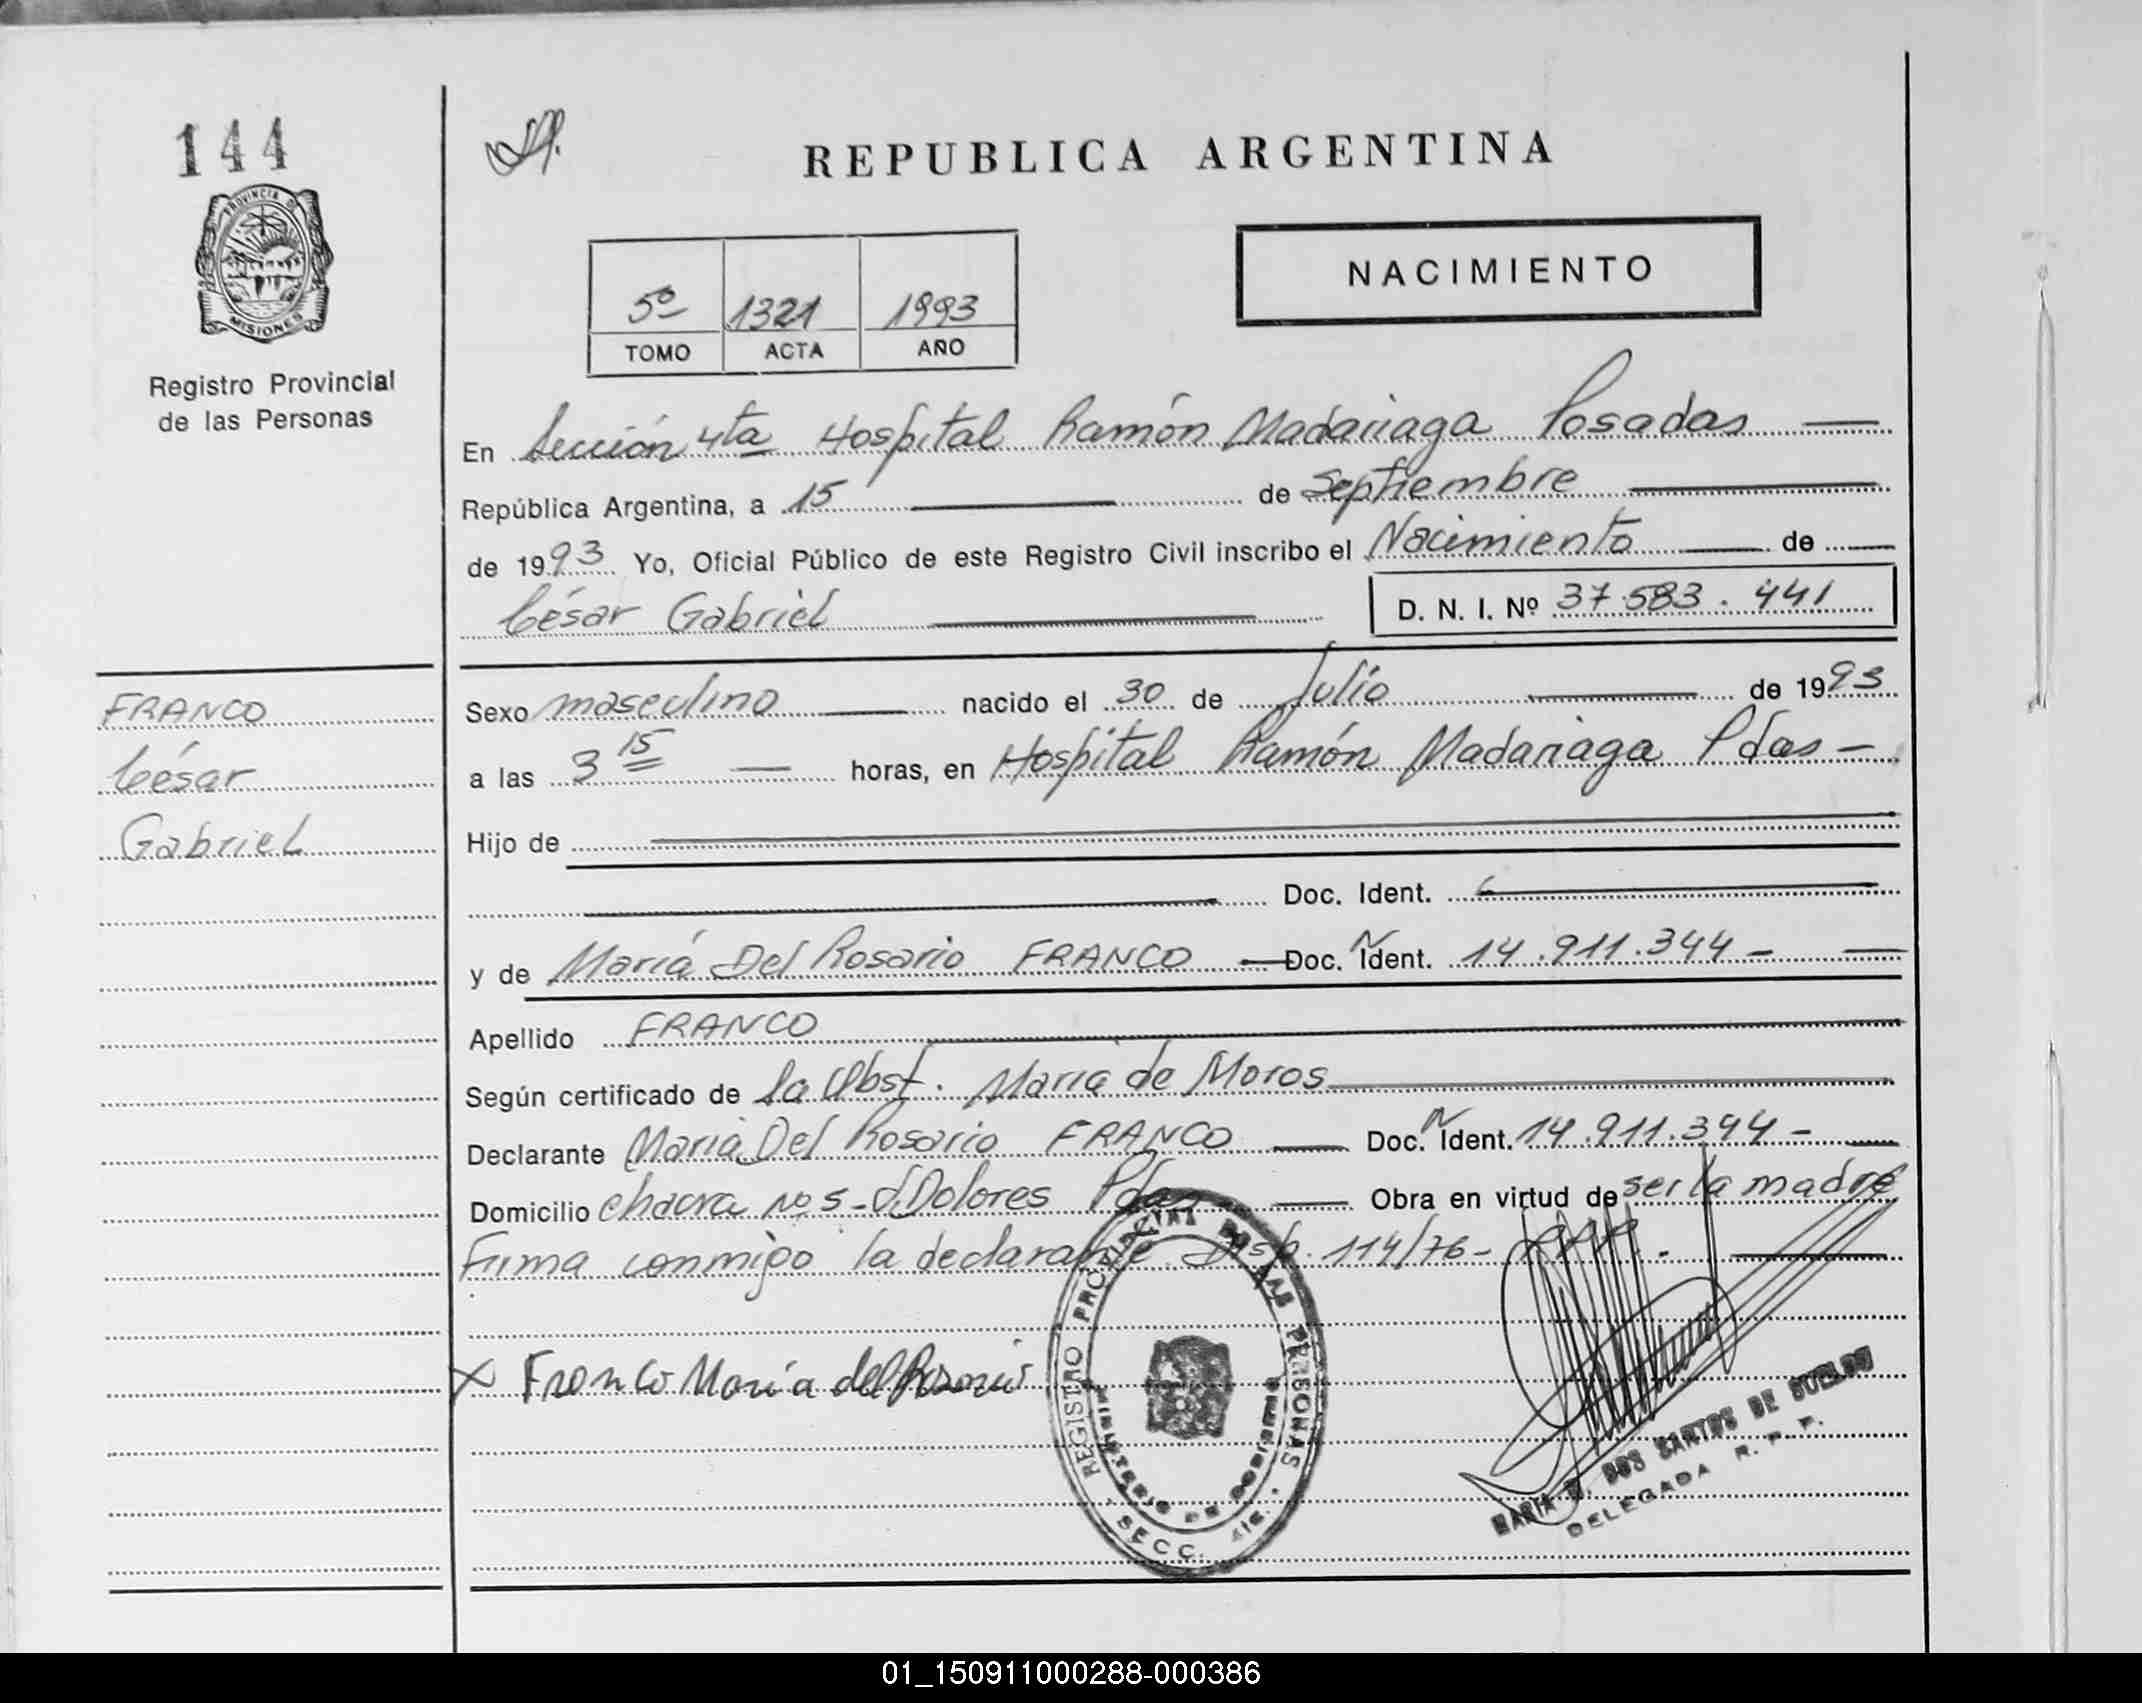 144
PROVINCIA DE
MISIONES
Registro Provincial
de las Personas
REPUBLICA ARGENTINA
5º 1321 1993
TOMO ACTA AÑO
NACIMIENTO
En Sección 4ta Hospital Ramón Madariaga Posadas
República Argentina, a 15 de Septiembre
de 1993 Yo, Oficial Público de este Registro Civil inscribo el Nacimiento de
César Gabriel D. N. I. Nº 37.583.441
FRANCO
César
Gabriel
Sexo masculino nacido el 30 de Julio de 1993
a las 3 15 horas, en Hospital Ramón Madariaga Pdas
Hijo de
Doc. Ident.
y de María Del Rosario FRANCO Doc. N Ident. 14.911.344
Apellido FRANCO
Según certificado de la Obst. María de Moros
Declarante María Del Rosario FRANCO Doc. N Ident. 14.911.344
Domicilio chacra Nº 5 - Dolores Pdas Obra en virtud de ser la madre
Firma conmigo la declarante. Disp. 114/76 - RPP.
X Franco María del Rosario
REGISTRO PROVINCIAL DE LAS PERSONAS
MINISTERIO DE GOBIERNO
SECC. 4ta.
MARIA DOS SANTOS DE SUELDO
DELEGADA R. P. P.
01_150911000288-000386